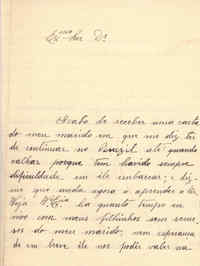 Ex.mo Snr Dr
Acabo de receber uma carta
do meu marido em que me diz ter
de continuar no Brazil até quando
calhar porque tem havido sempre
dificuldade em ele embarcar; e diz
me que nada agora
Veja V. Ex.cia ha quanto tempo eu
vivo com meus filhinhos sem
do meu marido, nem esperança
de em breve ele nos poder valer na